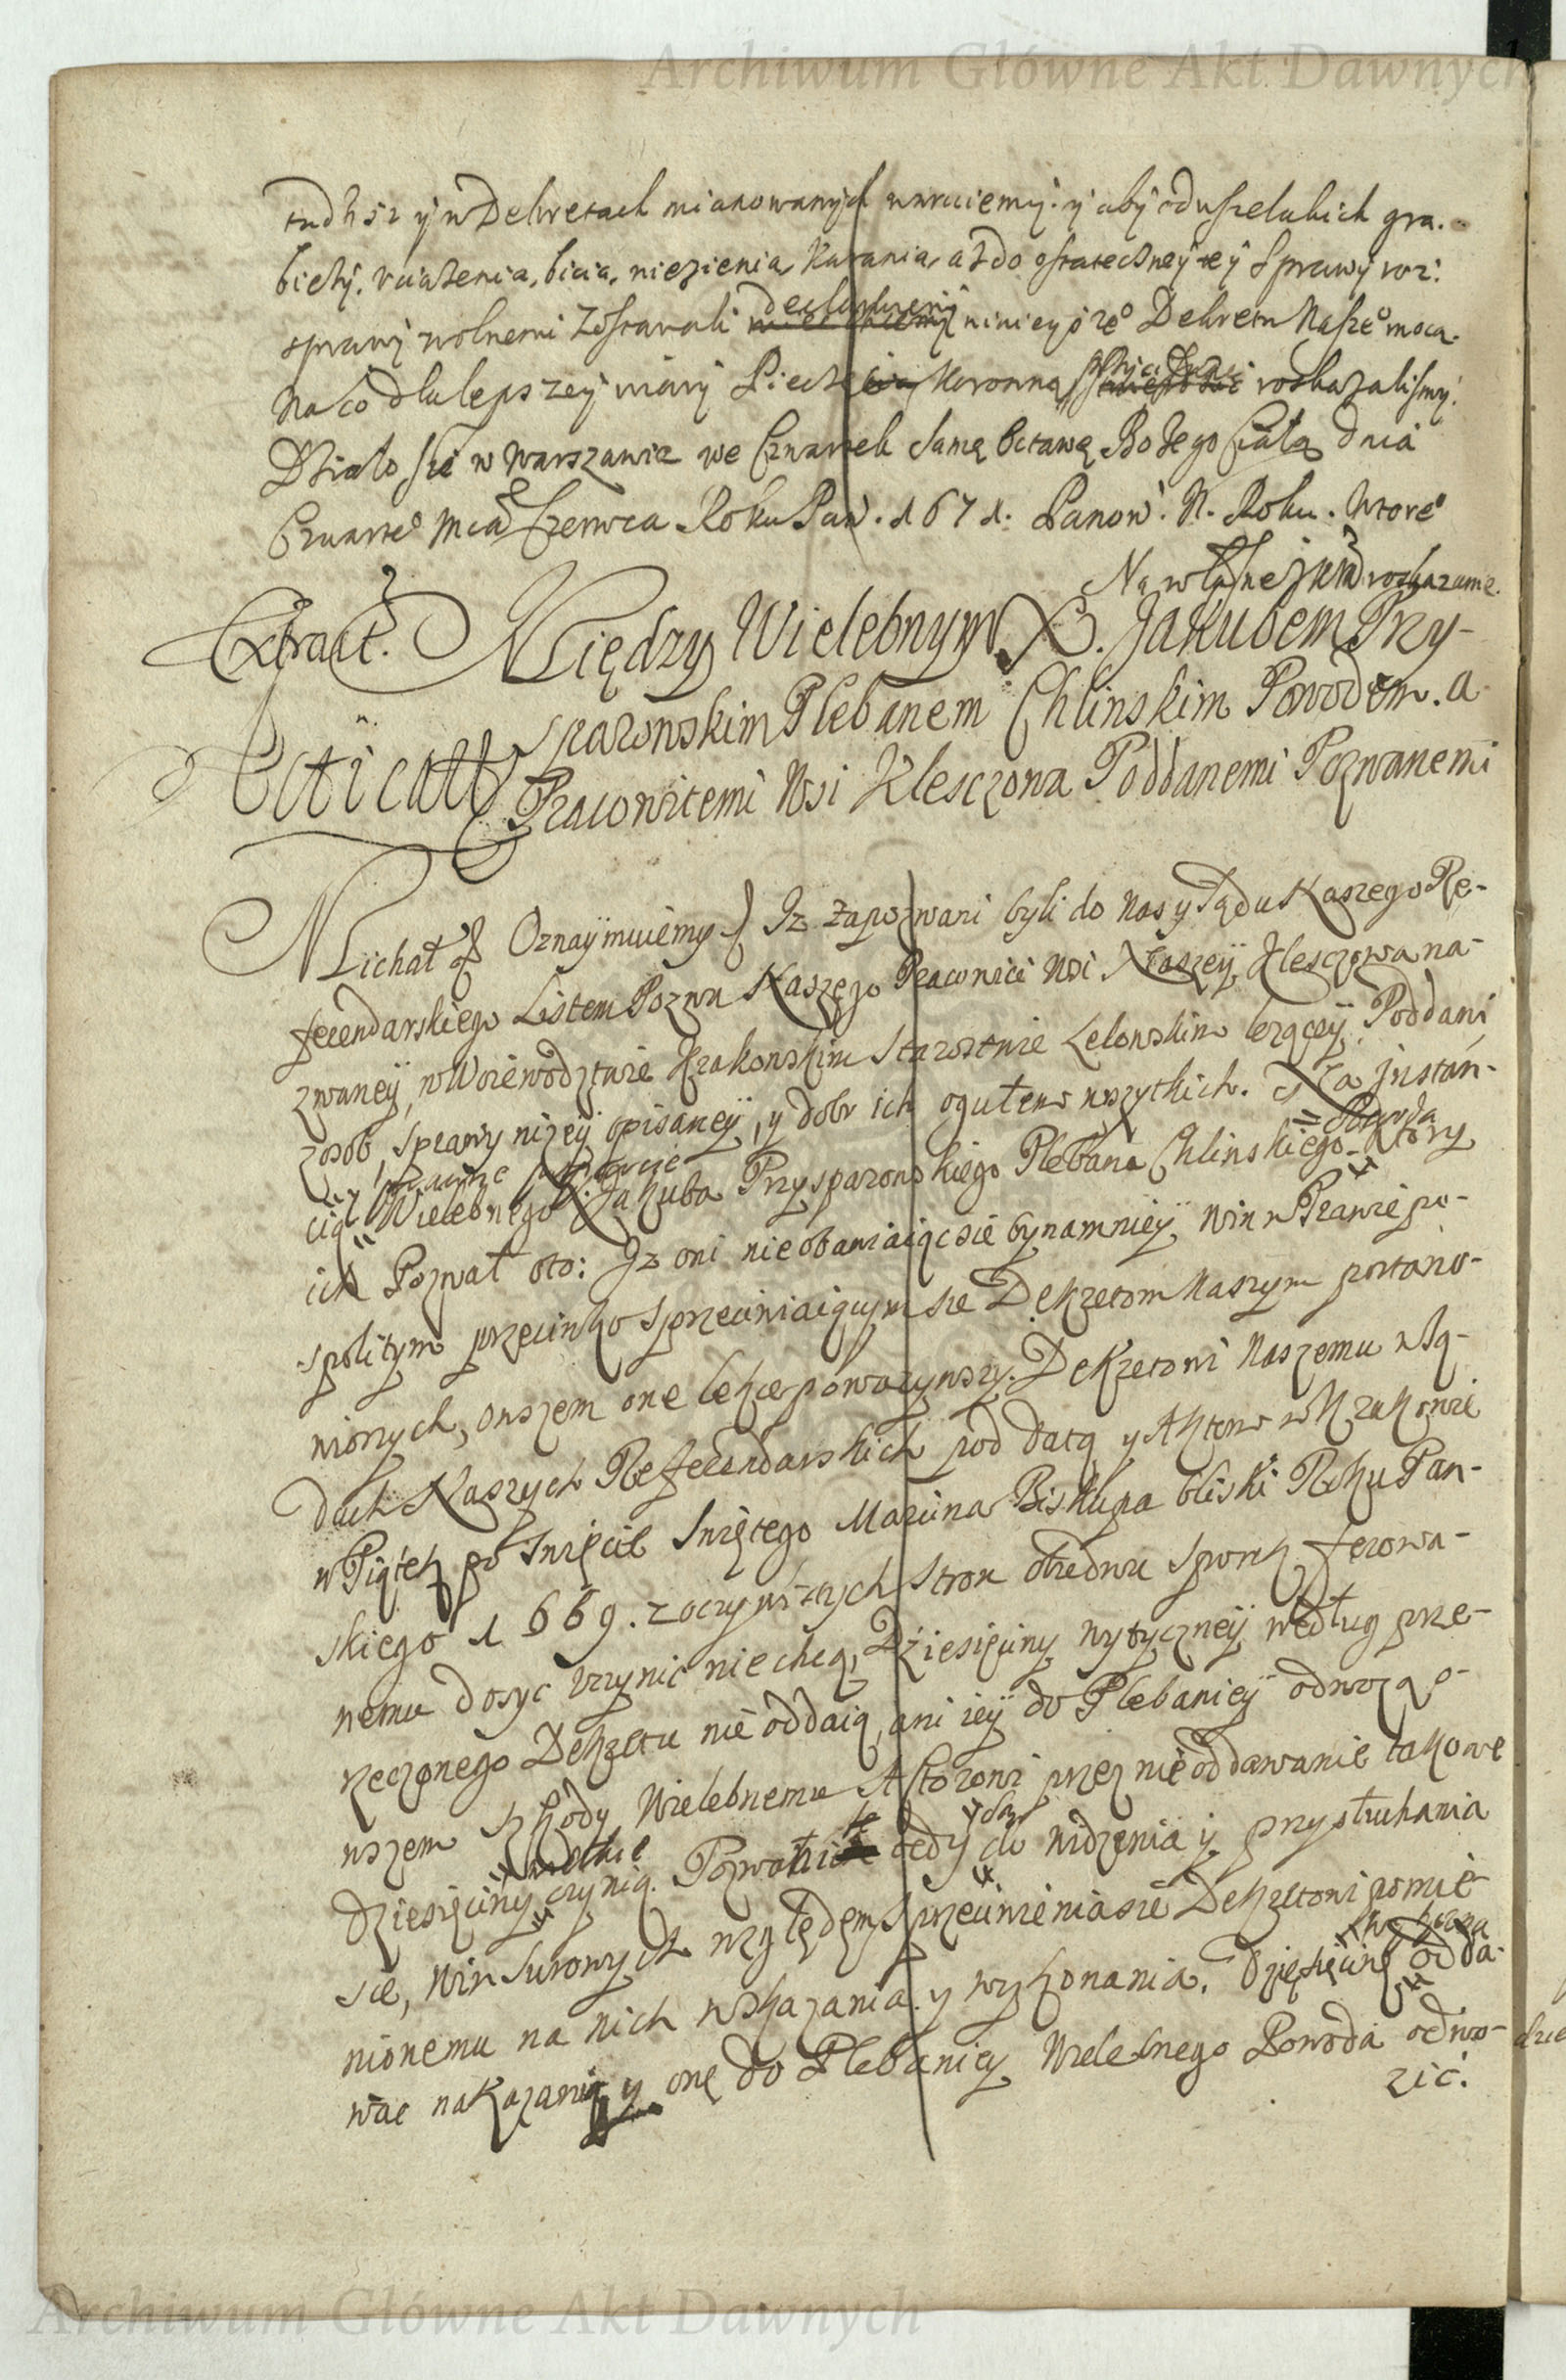 Archiwum Główne Akt Dawnych
tudzisz y w Dekretach mianowanych wraciemy. y aby od wszelakich gra.
bieży, uciążenia, bicia, więzienia, karania, aż do ostateczney tey sprawy roz:
sprawy wolnemi zostawali deklarujemy ninieyszeº Dekretu Naszeº mocą.
Na co dla lepszey wiary Pieczęć Koronną przycisnąć roskazalismy.
Działo się w Warszawie we Czwartek samą Octawę Bożego Ciała dnia
Czwarteº Mca Czerwca Roku Pań. 1671. Panow. N. Roku. Wtoreº
Na własne roskazanie.
Extract. Między Wielebnym X. Jakubem Przy-
sparowskim Plebanem Chlinskim Powodem. a
Pracowitemi Wsi Klesczowa Poddanemi Pozwanemi
Michał Oznaymuiemy Iz zapozwani byli do Nas y Sądu Naszego Re-
ferendarskiego Listem Pozwu Naszego Pracowici Wsi Naszey Klesczowa na-
zwaney, w Woiewodztwie Krakowskim Starostwie Lelowskim lezącey Poddani
z osob, sprawy nizey opisaney, y dobr ich ogułem wszytkich. Na instan-
cią Wielebnego X. Jakuba Przysparowskiego Plebana Chlinskiego Powoda Ktory
ich Pozwał oto: Iz oni nie obawiaiąc sie bynamniey win w Prawie po-
spolitym przeciwko sprzeciwiaiącym sie Dekretom Naszym postano-
wionych, owszem one lekce powazywszy. Dekretowi Naszemu w Są-
dach Naszych Referendarskich pod datą y Aktem w Krakowie
w Piątek po Swięcie Swiętego Marcina Biskupa bliski Roku Pań-
skiego 1669. z oczywistych stron obudwu sporek ferowa-
nemu dosyc uczynic nie chcą, Dziesięciny wytyczney według prze-
rzeczonego Dekretu nie oddaią, ani iey do Plebaniey odwozą o-
wszem szkody Wielebnemu Aktorowi przez nie oddawanie takowe
Dziesięciny wielkie czynią. Pozwani tedy są do widzenia y przysłuchania
sie, win surowych względem sprzeciwienia sie Dekretowi pomie-
nionemu na nich wskazania y wykonania. Dziesięcinę wytyczną odda-
wać nakazania y onę do Plebaniey Wielebnego Powoda odwo-
zić.
Archiwum Główne Akt Dawnych